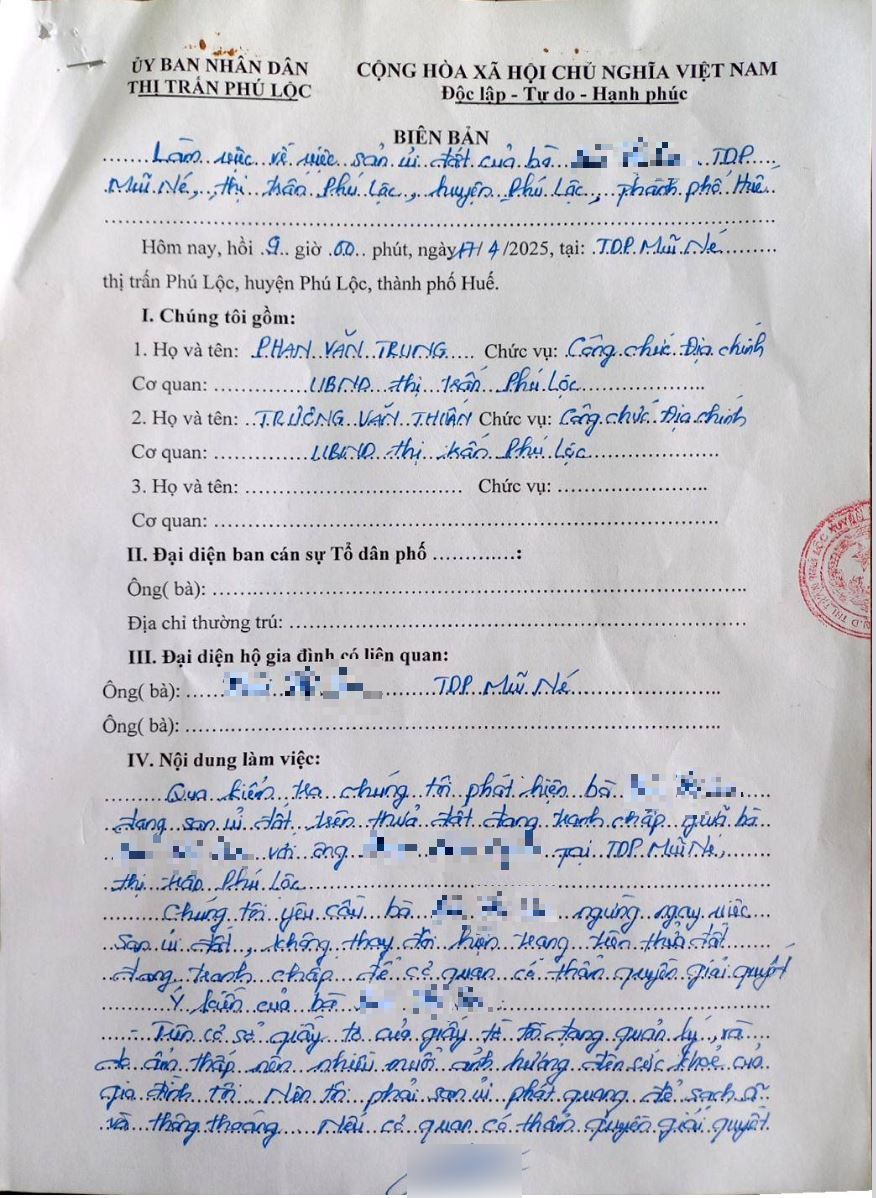 ỦY BAN NHÂN DÂN
THỊ TRẤN PHÚ LỘC
CỘNG HÒA XÃ HỘI CHỦ NGHĨA VIỆT NAM
Độc lập - Tự do - Hạnh phúc
BIÊN BẢN
Làm việc về việc sản ủi đất của bà TDP
Mũi Né, thị trấn Phú Lộc, huyện Phú Lộc, thành phố Huế
Hôm nay, hồi 9 giờ 00 phút, ngày 17/4/2025, tại: TDP Mũi Né
thị trấn Phú Lộc, huyện Phú Lộc, thành phố Huế.
I. Chúng tôi gồm:
1. Họ và tên: PHAN VĂN TRUNG Chức vụ: Công chức Địa chính
Cơ quan: UBND thị trấn Phú Lộc
2. Họ và tên: TRƯƠNG VĂN THUẤN Chức vụ: Công chức Địa chính
Cơ quan: UBND thị trấn Phú Lộc
3. Họ và tên: Chức vụ:
Cơ quan:
II. Đại diện ban cán sự Tổ dân phố :
Ông( bà):
Địa chỉ thường trú:
III. Đại diện hộ gia đình có liên quan:
Ông( bà): TDP Mũi Né
Ông( bà):
IV. Nội dung làm việc:
Qua kiểm tra chúng tôi phát hiện bà
đang san ủi đất trên thửa đất đang tranh chấp giữa bà
với ông tại TDP Mũi Né,
thị trấn Phú Lộc
Chúng tôi yêu cầu bà ngừng ngay việc
san ủi đất, không thay đổi hiện trạng trên thửa đất
đang tranh chấp để cơ quan có thẩm quyền giải quyết
Ý kiến của bà :
- Trên cơ sở giấy tờ của giấy tờ tôi đang quản lý, và
do ẩm thấp nên nhiều muỗi ảnh hưởng đến sức khoẻ của
gia đình tôi. Nên tôi phải san ủi phát quang để sạch sẽ
và thông thoáng. Nếu cơ quan có thẩm quyền giải quyết